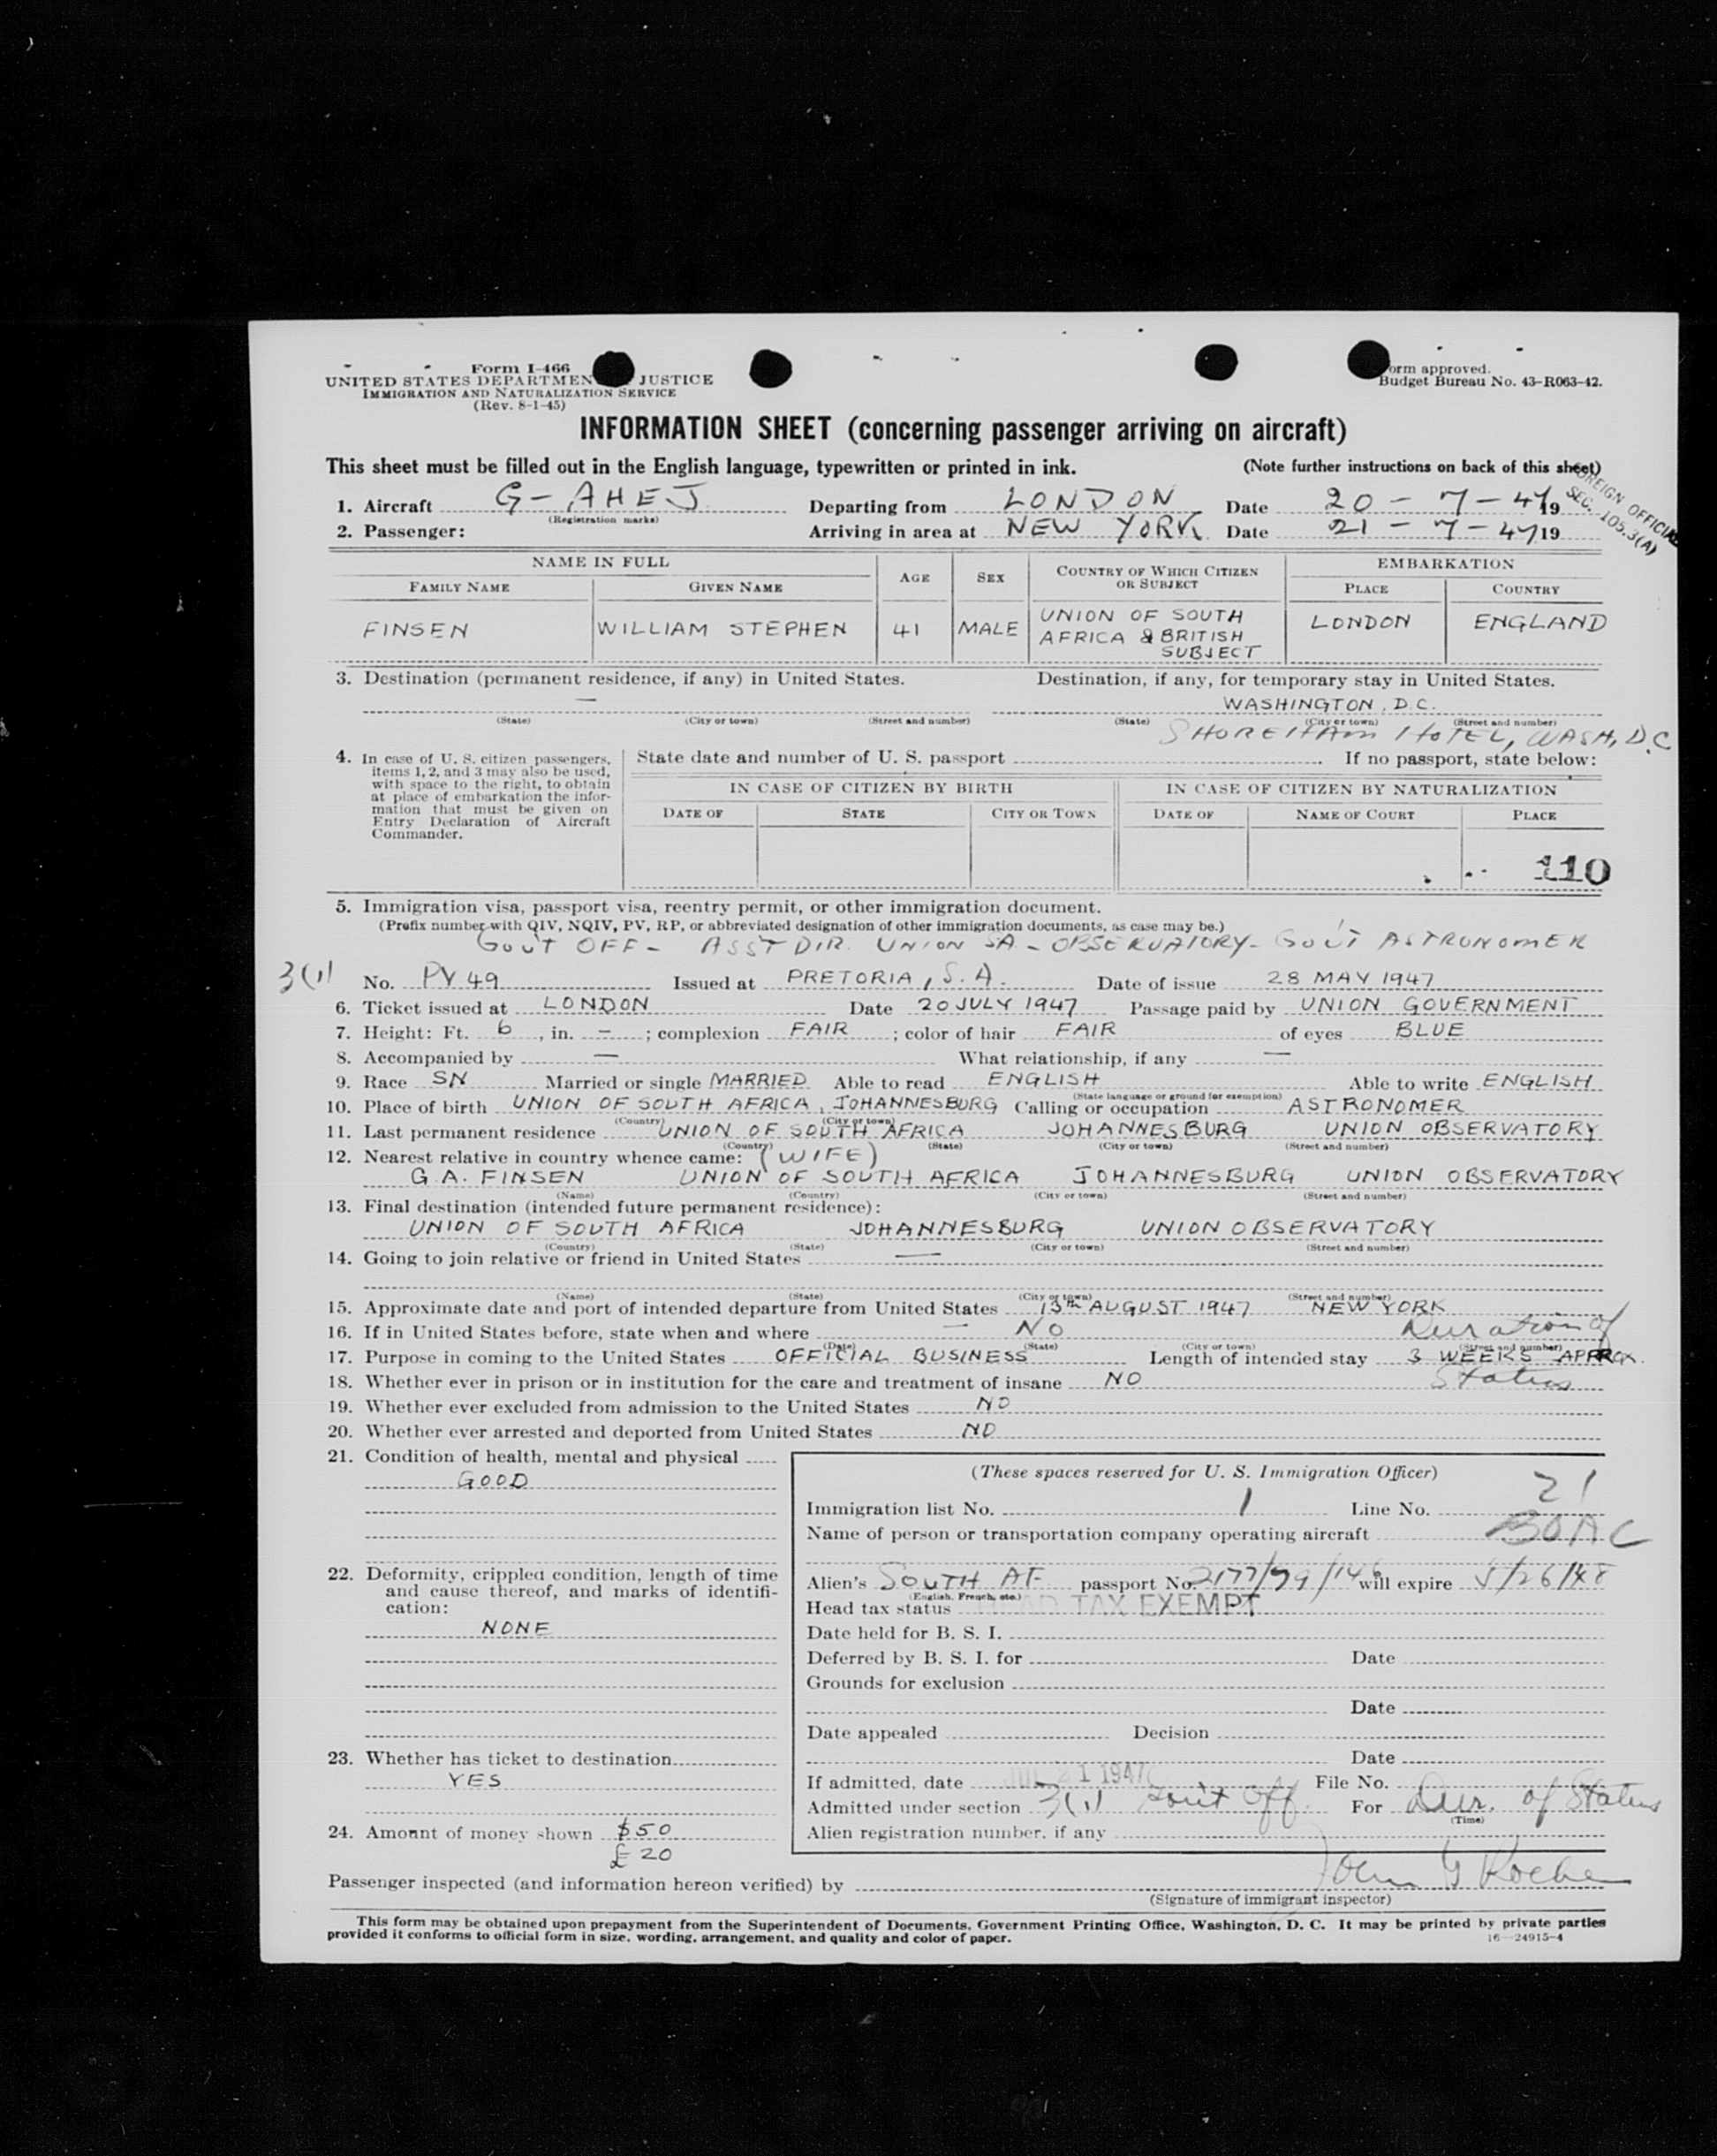 Form I-466
UNITED STATES DEPARTMEN JUSTICE
IMMIGRATION AND NATURALIZATION SERVICE
(Rev. 8-1-45)
orm approved.
Budget Bureau No. 43-R063-42.
INFORMATION SHEET (concerning passenger arriving on aircraft)
This sheet must be filled out in the English language, typewritten or printed in ink. (Note further instructions on back of this sheet)
FOREIGN OFFICIAL
SEC. 105.3(A)
1. Aircraft G-AHEJ Departing from LONDON Date 20-7-47 19
(Registration marks)
2. Passenger: Arriving in area at NEW YORK Date 21-7-47 19
NAME IN FULL AGE SEX COUNTRY OF WHICH CITIZEN OR SUBJECT EMBARKATION
FAMILY NAME GIVEN NAME PLACE COUNTRY
FINSEN WILLIAM STEPHEN 41 MALE UNION OF SOUTH AFRICA & BRITISH SUBJECT LONDON ENGLAND
3. Destination (permanent residence, if any) in United States. Destination, if any, for temporary stay in United States.
— WASHINGTON, D.C.
(State) (City or town) (Street and number) (State) (City or town) (Street and number)
SHOREHAM HOTEL, WASH, D.C
4. In case of U. S. citizen passengers, items 1, 2, and 3 may also be used, with space to the right, to obtain at place of embarkation the information that must be given on Entry Declaration of Aircraft Commander.
State date and number of U. S. passport If no passport, state below:
IN CASE OF CITIZEN BY BIRTH IN CASE OF CITIZEN BY NATURALIZATION
DATE OF STATE CITY OR TOWN DATE OF NAME OF COURT PLACE
110
5. Immigration visa, passport visa, reentry permit, or other immigration document.
(Prefix number with QIV, NQIV, PV, RP, or abbreviated designation of other immigration documents, as case may be.)
GOV'T OFF - ASS'T DIR. UNION SA - OBSERVATORY - GOV'T ASTRONOMER
3(1) No. PV 49 Issued at PRETORIA, S.A. Date of issue 28 MAY 1947
6. Ticket issued at LONDON Date 20 JULY 1947 Passage paid by UNION GOVERNMENT
7. Height: Ft. 6, in. —; complexion FAIR; color of hair FAIR of eyes BLUE
8. Accompanied by — What relationship, if any —
9. Race SN Married or single MARRIED Able to read ENGLISH Able to write ENGLISH
(State language or ground for exemption)
10. Place of birth UNION OF SOUTH AFRICA, JOHANNESBURG Calling or occupation ASTRONOMER
(Country) (City or town)
11. Last permanent residence UNION OF SOUTH AFRICA JOHANNESBURG UNION OBSERVATORY
(Country) (State) (City or town) (Street and number)
12. Nearest relative in country whence came: (WIFE)
G.A. FINSEN UNION OF SOUTH AFRICA JOHANNESBURG UNION OBSERVATORY
(Name) (Country) (City or town) (Street and number)
13. Final destination (intended future permanent residence):
UNION OF SOUTH AFRICA JOHANNESBURG UNION OBSERVATORY
(Country) (State) (City or town) (Street and number)
14. Going to join relative or friend in United States —
(Name) (State) (City or town) (Street and number)
15. Approximate date and port of intended departure from United States 13th AUGUST 1947 NEW YORK
16. If in United States before, state when and where — NO Duration of
(Date) (State) (City or town) (Street and number)
17. Purpose in coming to the United States OFFICIAL BUSINESS Length of intended stay 3 WEEKS APPROX.
18. Whether ever in prison or in institution for the care and treatment of insane NO Status
19. Whether ever excluded from admission to the United States NO
20. Whether ever arrested and deported from United States NO
21. Condition of health, mental and physical
GOOD
22. Deformity, crippled condition, length of time and cause thereof, and marks of identification:
NONE
23. Whether has ticket to destination
YES
24. Amount of money shown $50
£20
(These spaces reserved for U. S. Immigration Officer)
Immigration list No. 1 Line No. 21
Name of person or transportation company operating aircraft BOAC
Alien's SOUTH AF passport No. 2177/79/146 will expire 5/26/48
(English, French, etc.)
Head tax status HEAD TAX EXEMPT
Date held for B. S. I.
Deferred by B. S. I. for Date
Grounds for exclusion
Date
Date appealed Decision
Date
If admitted, date JUL 21 1947 File No.
Admitted under section 3(1) Gov't Off. For Dur. of Status
(Time)
Alien registration number, if any
Passenger inspected (and information hereon verified) by John G Roche
(Signature of immigrant inspector)
This form may be obtained upon prepayment from the Superintendent of Documents, Government Printing Office, Washington, D. C. It may be printed by private parties
provided it conforms to official form in size, wording, arrangement, and quality and color of paper. 16—24915-4